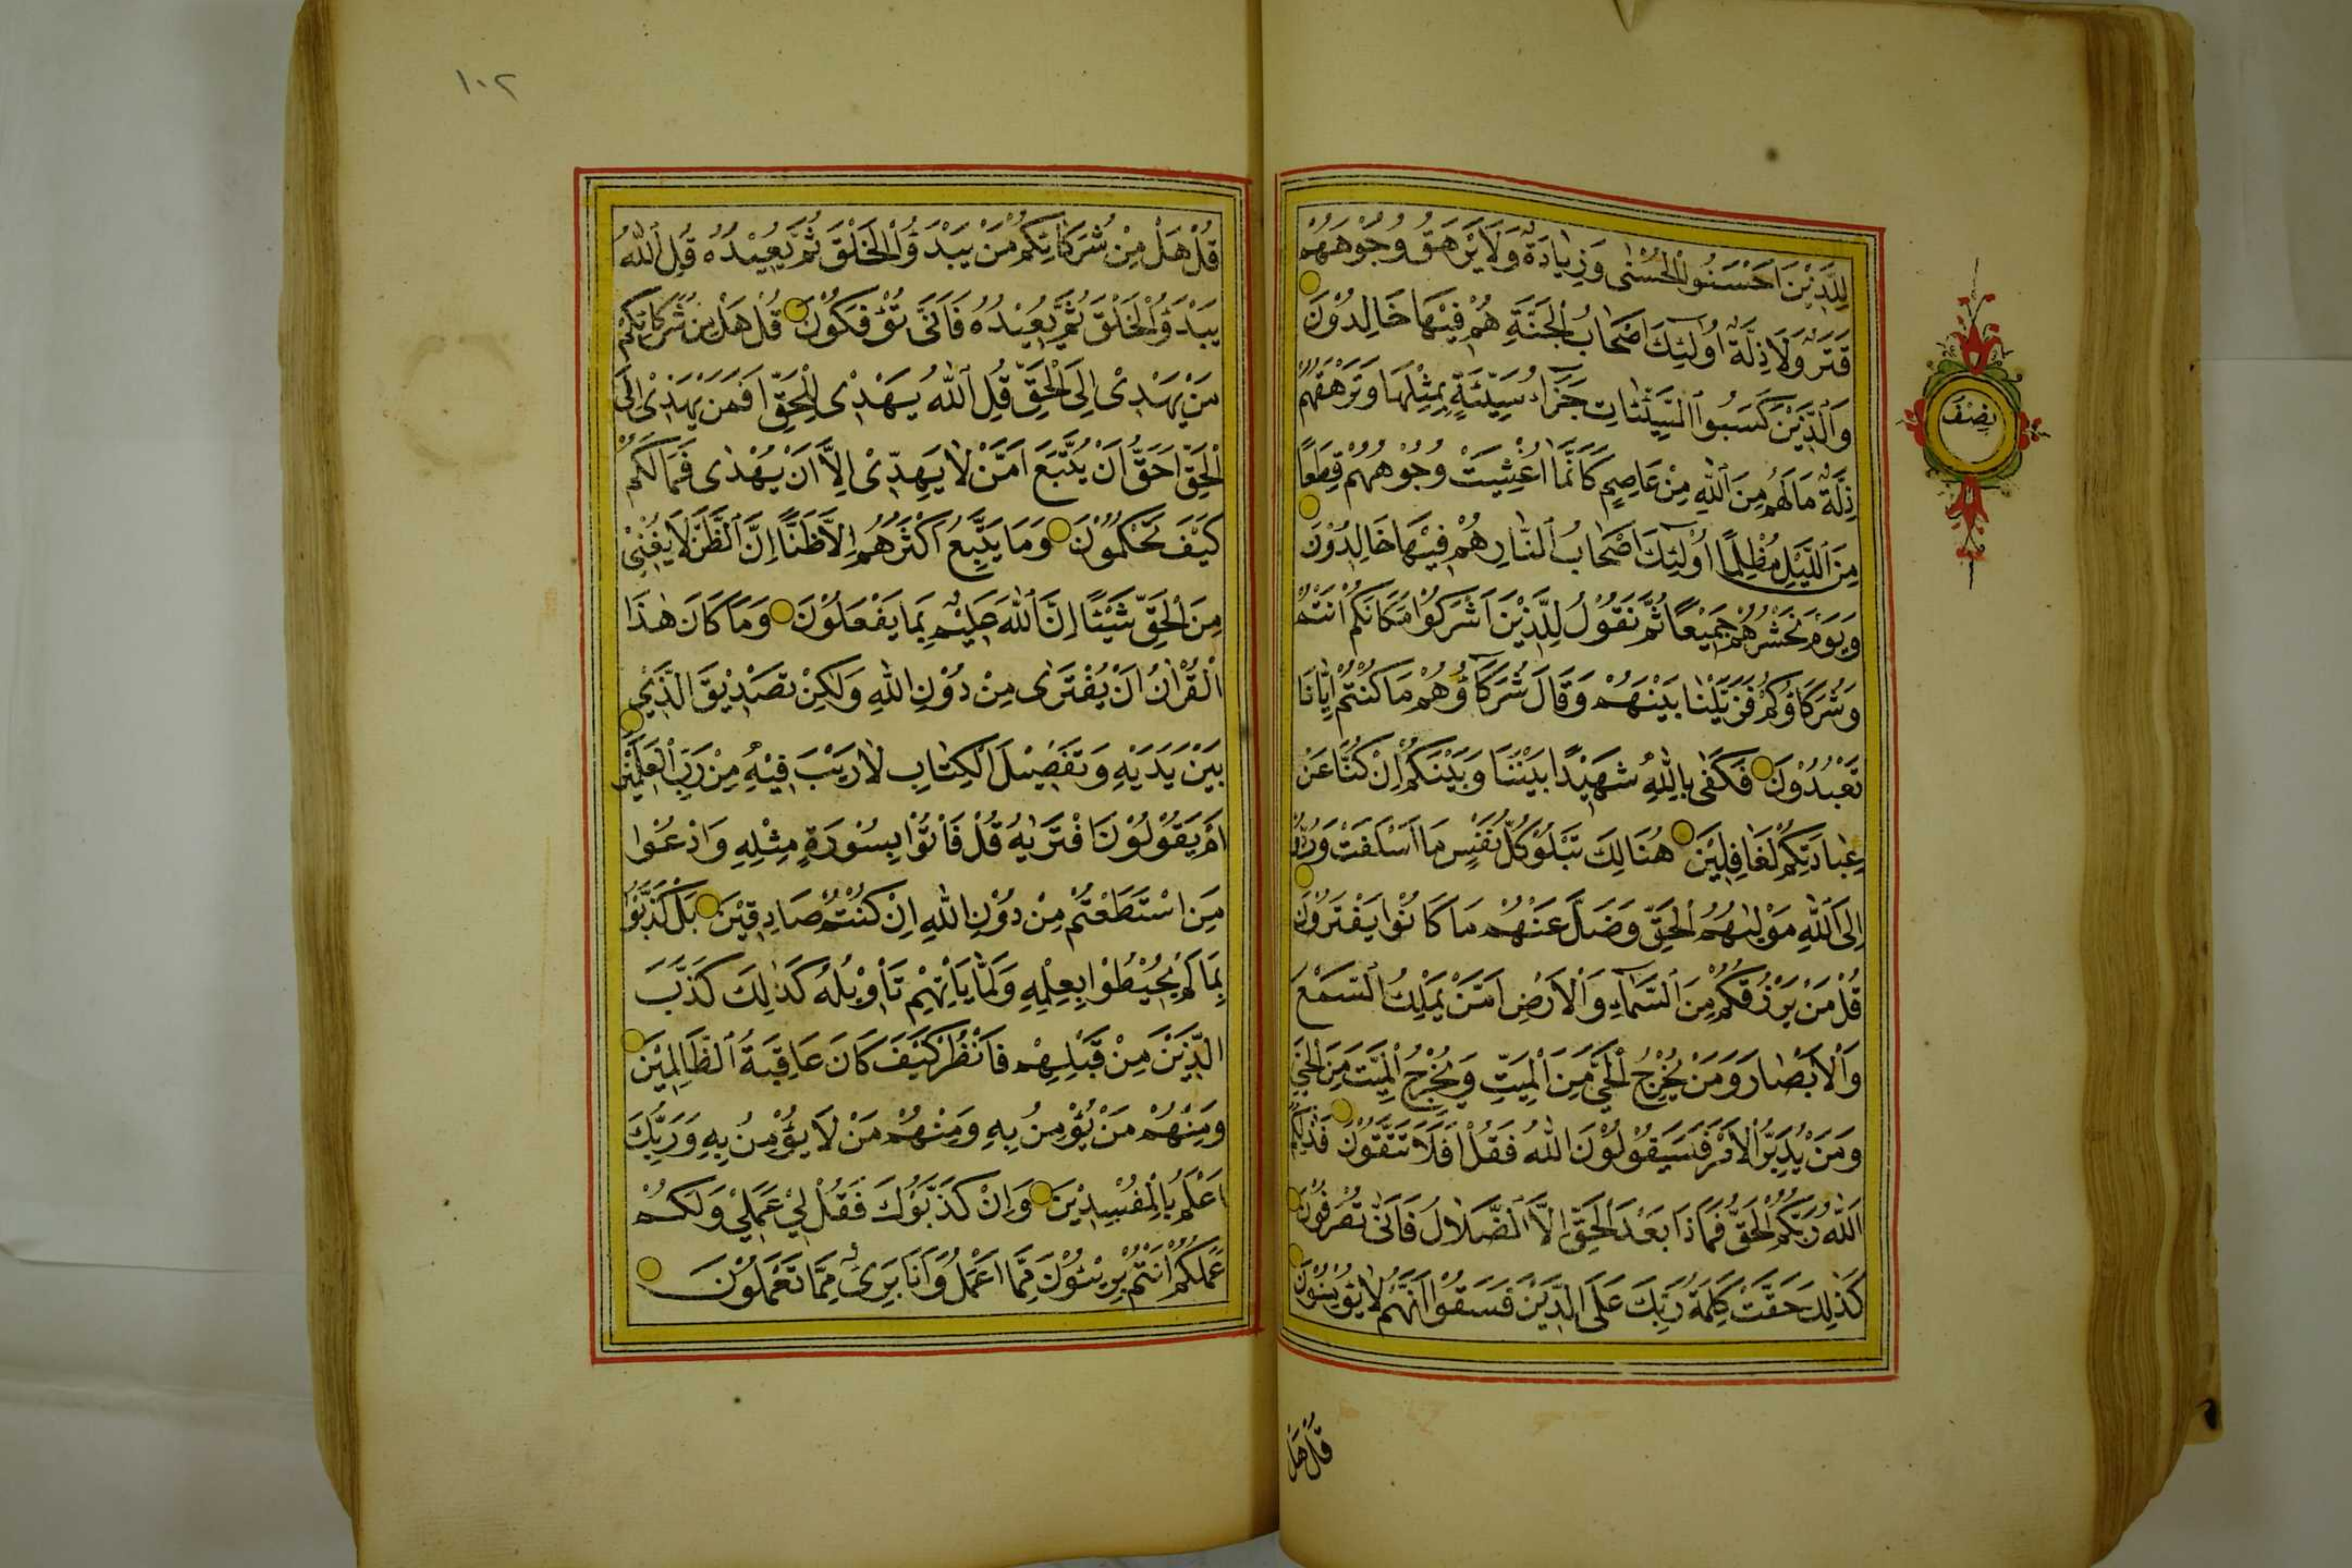 لِلَّذِيْنَ اَحْسَنُوا الْحُسْنٰى وَزِيٰادَةٌ وَلَا يَرْهَقُ وُجُوهَهُمْ
قَتَرٌ وَلَا ذِلَّةٌ اُولٰٓئِكَ اَصْحَابُ الْجَنَّةِ هُمْ فِيْهَا خَالِدُوْنَ
وَالَّذِيْنَ كَسَبُوا السَّيِّئٰاتِ جَزَٓاءُ سَيِّئَةٍ بِمِثْلِهَا وَتَرْهَقُهُمْ
ذِلَّةٌ مَا لَهُمْ مِنَ اللّٰهِ مِنْ عَاصِمٍ كَاَنَّمَا اُغْشِيَتْ وُجُوْهُهُمْ قِطَعًا
مِنَ اللَّيْلِ مُظْلِمًا اُولٰٓئِكَ اَصْحَابُ النَّارِ هُمْ فِيْهَا خَالِدُوْنَ
وَيَوْمَ نَحْشُرُهُمْ جَمِيْعًا ثُمَّ نَقُوْلُ لِلَّذِيْنَ اَشْرَكُوْا مَكَانَكُمْ اَنْتُمْ
وَشُرَكَاؤُكُمْ فَزَيَّلْنَا بَيْنَهُمْ وَقَالَ شُرَكَٓاؤُهُمْ مَا كُنْتُمْ اِيَّانَا
تَعْبُدُوْنَ فَكَفٰى بِاللّٰهِ شَهِيْدًا بَيْنَنَا وَبَيْنَكُمْ اِنْ كُنَّا عَنْ
عِبَادَتِكُمْ لَغَافِلِيْنَ هُنَالِكَ تَبْلُوْ كُلُّ نَفْسٍ مَا اَسْلَفَتْ وَرُدُّوا
اِلَى اللّٰهِ مَوْلٰيهُمُ الْحَقِّ وَضَلَّ عَنْهُمْ مَا كَانُوْا يَفْتَرُوْنَ
قُلْ مَنْ يَرْزُقُكُمْ مِنَ السَّمَٓاءِ وَالْاَرْضِ اَمَّنْ يَمْلِكُ السَّمْعَ
وَالْاَبْصَارَ وَمَنْ يُخْرِجُ الْحَيَّ مِنَ الْمَيِّتِ وَيُخْرِجُ الْمَيِّتَ مِنَ الْحَيِّ
وَمَنْ يُدَبِّرُ الْاَمْرَ فَسَيَقُوْلُوْنَ اللّٰهُ فَقُلْ اَفَلَا تَتَّقُوْنَ فَذٰلِكُمُ
اللّٰهُ رَبُّكُمُ الْحَقُّ فَمَاذَا بَعْدَ الْحَقِّ اِلَّا الضَّلَالُ فَاَنّٰى تُصْرَفُوْنَ
كَذٰلِكَ حَقَّتْ كَلِمَةُ رَبِّكَ عَلَى الَّذِيْنَ فَسَقُوْا اَنَّهُمْ لَا يُؤْمِنُوْنَ
قُلْ هَلْ
نِصْف
١٠٢
قُلْ هَلْ مِنْ شُرَكَائِكُمْ مَنْ يَبْدَؤُا الْخَلْقَ ثُمَّ يُعِيْدُهُ قُلِ اللّٰهُ
يَبْدَؤُا الْخَلْقَ ثُمَّ يُعِيْدُهُ فَاَنّٰى تُؤْفَكُوْنَ قُلْ هَلْ مِنْ شُرَكَائِكُمْ
مَنْ يَهْدِىْ اِلَى الْحَقِّ قُلِ اللّٰهُ يَهْدِىْ لِلْحَقِّ اَفَمَنْ يَهْدِىْ اِلَى
الْحَقِّ اَحَقُّ اَنْ يُتَّبَعَ اَمَّنْ لَا يَهِدِّىْ اِلَّا اَنْ يُهْدٰى فَمَا لَكُمْ
كَيْفَ تَحْكُمُوْنَ وَمَا يَتَّبِعُ اَكْثَرُهُمْ اِلَّا ظَنًّا اِنَّ الظَّنَّ لَا يُغْنِىْ
مِنَ الْحَقِّ شَيْئًا اِنَّ اللّٰهَ عَلِيْمٌ بِمَا يَفْعَلُوْنَ وَمَا كَانَ هٰذَا
الْقُرْاٰنُ اَنْ يُفْتَرٰى مِنْ دُوْنِ اللّٰهِ وَلٰكِنْ تَصْدِيْقَ الَّذِىْ
بَيْنَ يَدَيْهِ وَتَفْصِيْلَ الْكِتَابِ لَا رَيْبَ فِيْهِ مِنْ رَبِّ الْعٰلَمِيْنَ
اَمْ يَقُوْلُوْنَ افْتَرٰيهُ قُلْ فَأْتُوْا بِسُوْرَةٍ مِثْلِهِ وَادْعُوْا
مَنِ اسْتَطَعْتُمْ مِنْ دُوْنِ اللّٰهِ اِنْ كُنْتُمْ صَادِقِيْنَ بَلْ كَذَّبُوْا
بِمَا لَمْ يُحِيْطُوْا بِعِلْمِهِ وَلَمَّا يَأْتِهِمْ تَأْوِيْلُهُ كَذٰلِكَ كَذَّبَ
الَّذِيْنَ مِنْ قَبْلِهِمْ فَانْظُرْ كَيْفَ كَانَ عَاقِبَةُ الظَّالِمِيْنَ
وَمِنْهُمْ مَنْ يُؤْمِنُ بِهِ وَمِنْهُمْ مَنْ لَا يُؤْمِنُ بِهِ وَرَبُّكَ
اَعْلَمُ بِالْمُفْسِدِيْنَ وَاِنْ كَذَّبُوْكَ فَقُلْ لِىْ عَمَلِىْ وَلَكُمْ
عَمَلُكُمْ اَنْتُمْ بَرِيْئُوْنَ مِمَّا اَعْمَلُ وَاَنَا بَرِىءٌ مِمَّا تَعْمَلُوْنَ